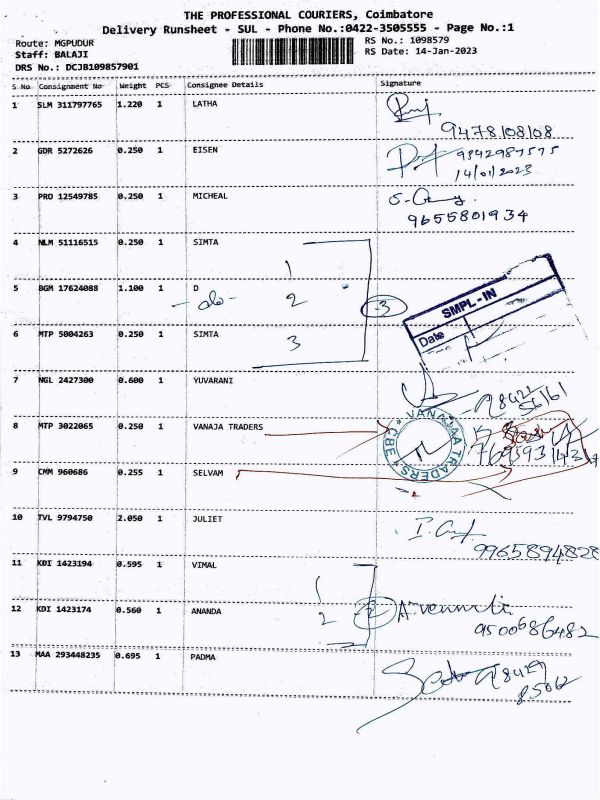 THE PROFESSIONAL COURIERS, Coimbatore
Delivery Runsheet - SUL - Phone No.:0422-3505555 - Page No.:1
Route: MGPUDUR RS No.: 1098579
Staff: BALAJI RS Date: 14-Jan-2023
DRS No.: DCJB109857901
S No Consignment No Weight PCS Consignee Details Signature
1 SLM 311797765 1.220 1 LATHA
9478108108
2 GDR 5272626 0.250 1 EISEN 9342987575
14/01/2023
3 PRO 12549785 0.250 1 MICHEAL
9655801934
4 NLM 51116515 0.250 1 SIMTA
1
5 BGM 17624088 1.100 1 D
-do- 2 -3
SMPL-IN
Date
6 MTP 5004263 0.250 1 SIMTA
3
7 NGL 2427300 0.600 1 YUVARANI
8 MTP 3022065 0.250 1 VANAJA TRADERS
VANAJAA TRADERS CBE
9 CMM 960686 0.255 1 SELVAM
10 TVL 9794750 2.050 1 JULIET
9965894828
11 KDI 1423194 0.595 1 VIMAL
1
12 KDI 1423174 0.560 1 ANANDA
2 -2
9500686482
13 MAA 293448235 0.695 1 PADMA